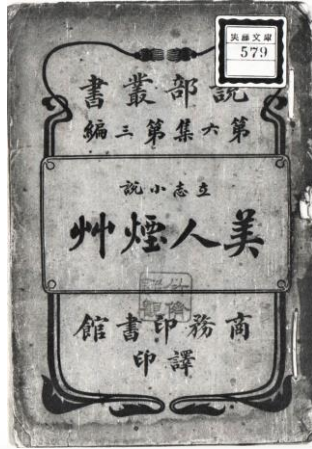 実藤文庫
579
說部叢書
第六集第三編
立志小說
美人煙艸
商務印書館
譯印